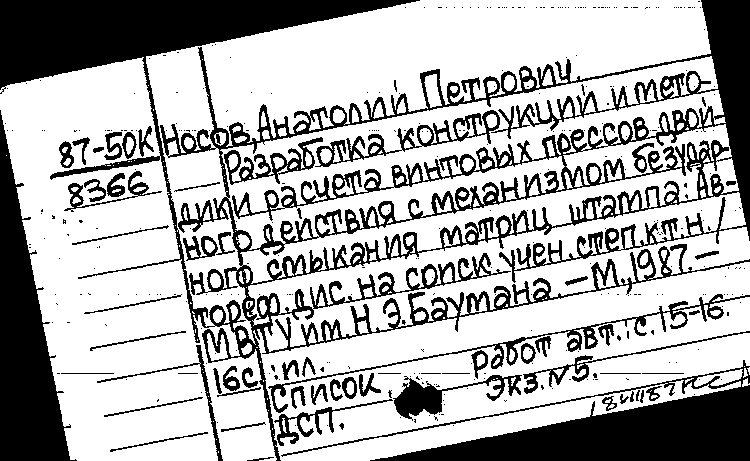 87-50К
8366
Носов, Анатолий Петрович.
Разработка конструкций и мето-
дики расчета винтовых прессов двой-
ного действия с механизмом безудар-
ного смыкания матриц штампа: Ав-
тореф. дис. на соиск. учен. степ. к.т.н. /
МВТУ им. Н.Э. Баумана. – М., 1987. –
16с. : ил.
Список работ авт.: с. 15-16.
ДСП. Экз. №5.